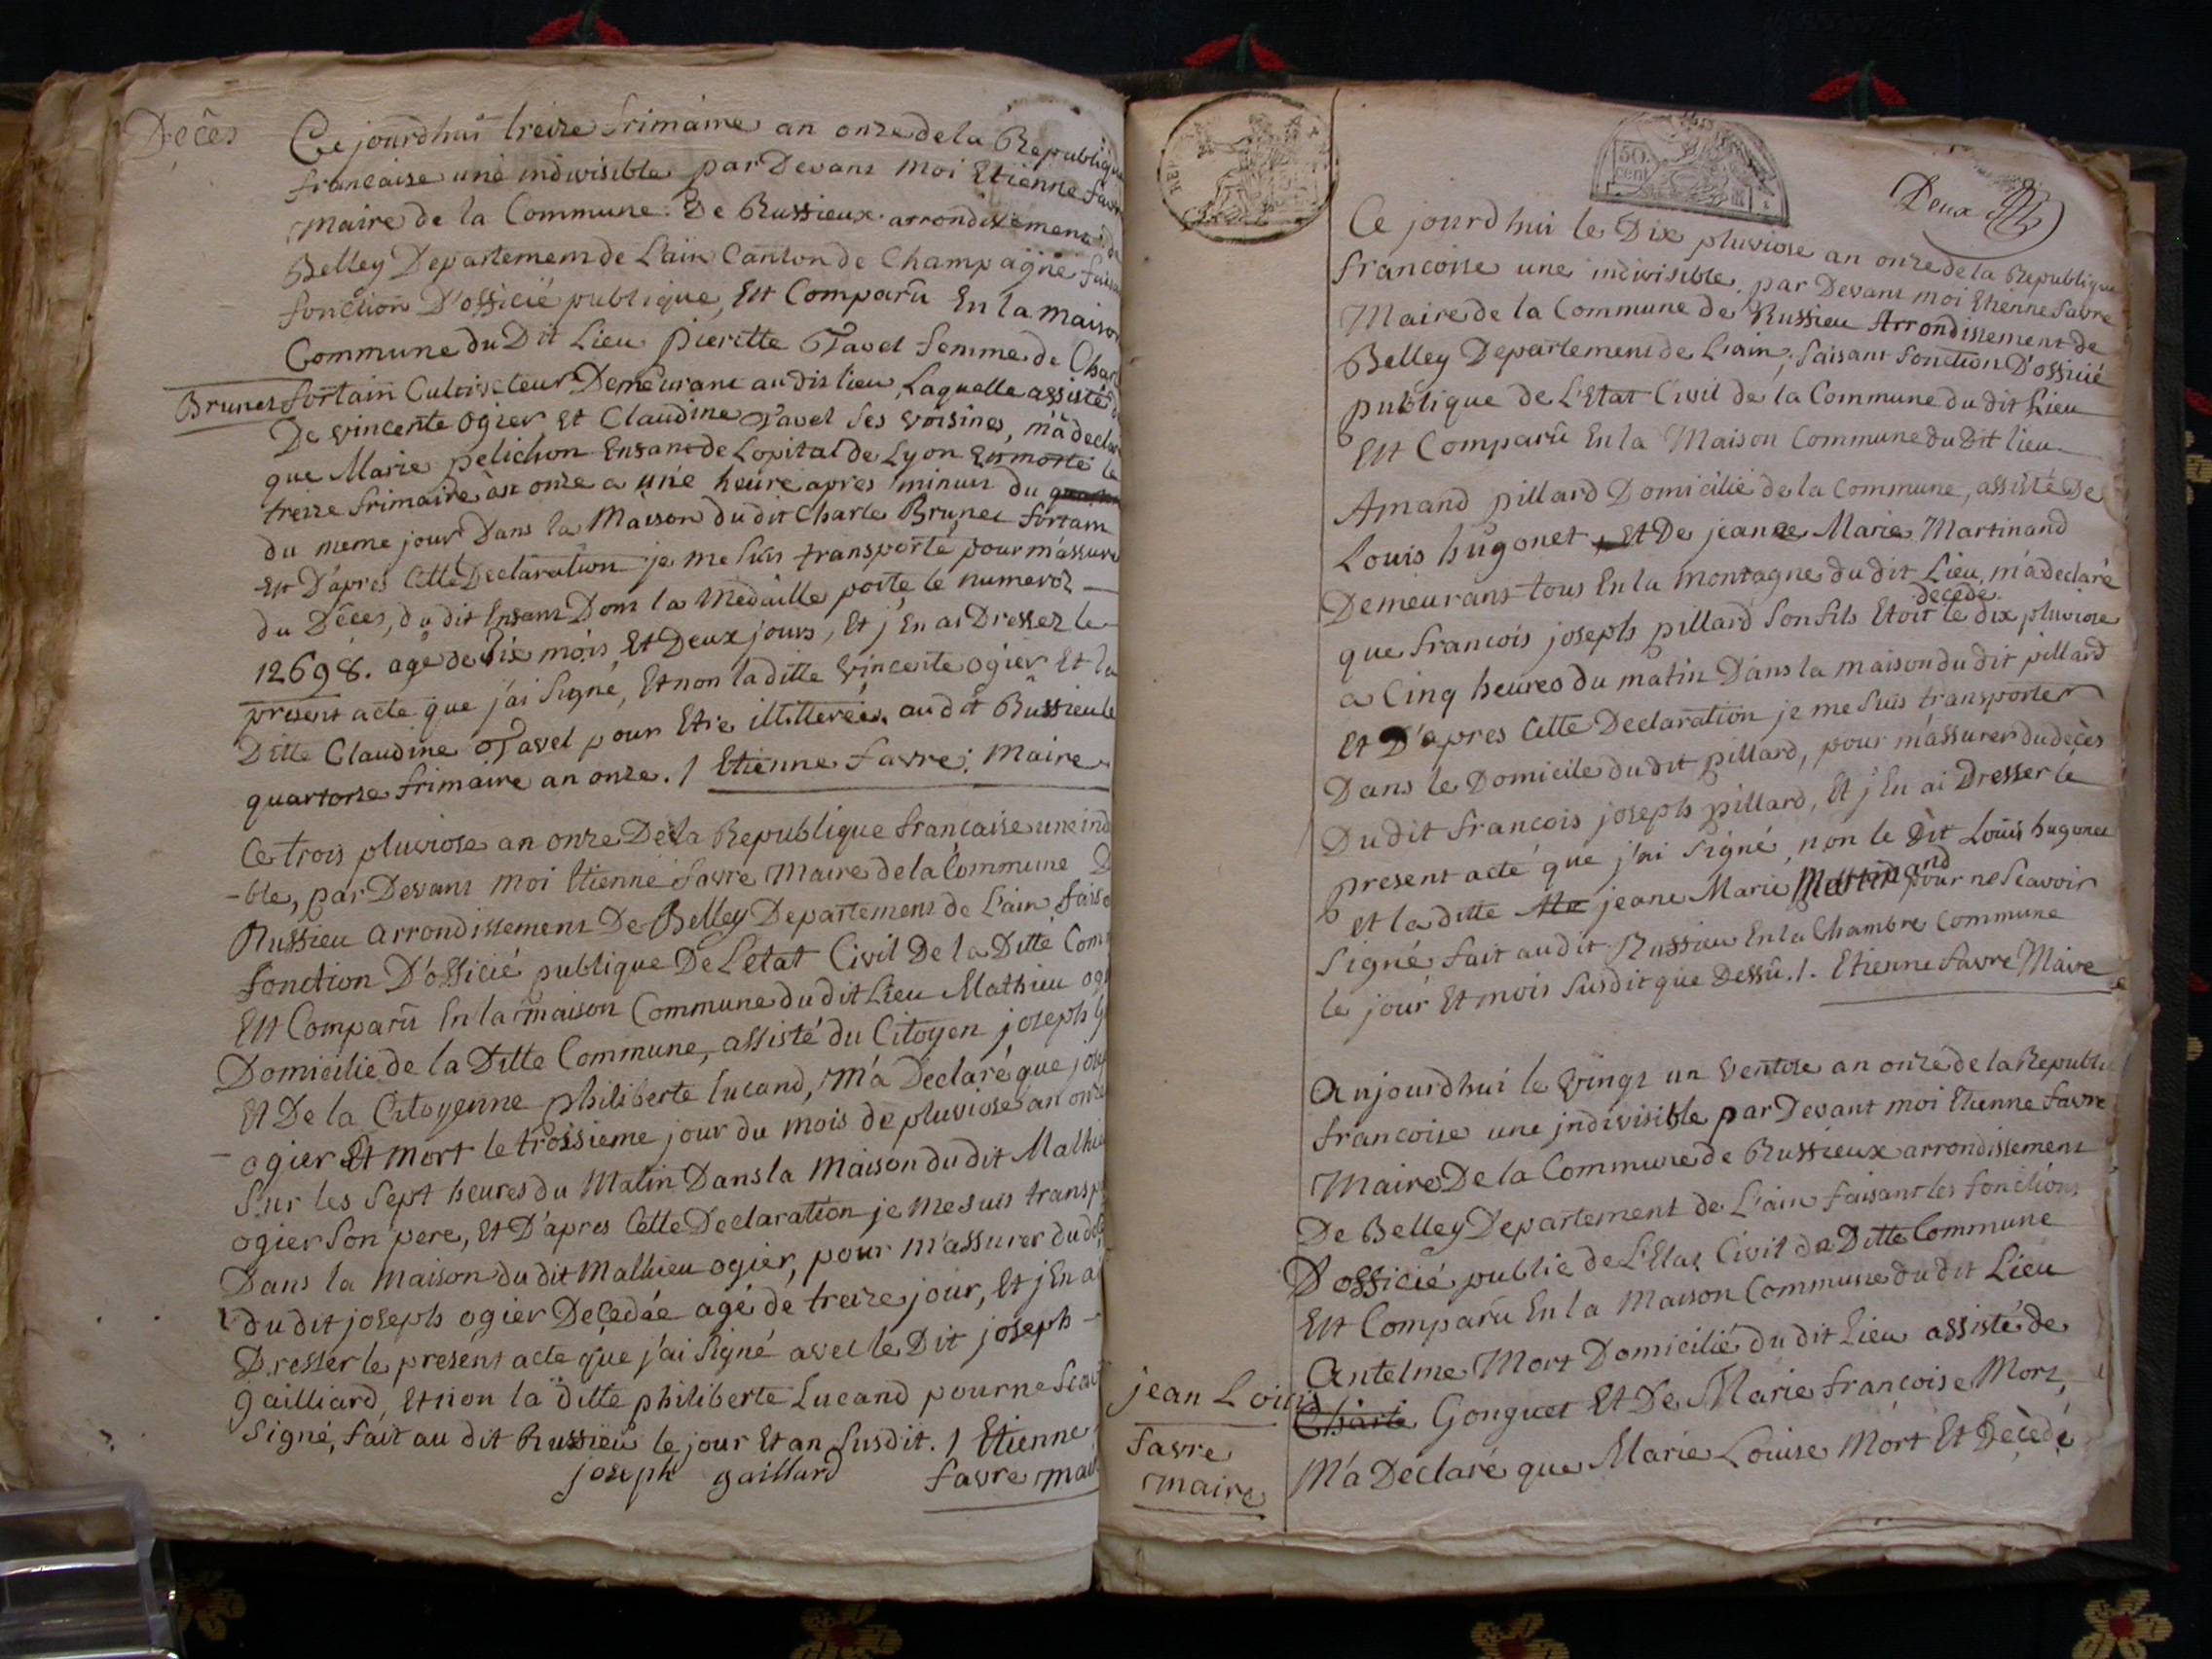 Decès
Ce jourdhui treize frimaire an onze de la Republique
francaise une indivisible par Devant moi Etienne favre
maire de la Commune De Russieux arrondissement de
Belley Departement de L'ain Canton de Champagne faisant
fonction D'officié publique, Est Comparû En la maison
Commune du Dit Lieu pierette Tavel femme de Charle
Brunet fortain Cultivateur Demeurant au dit lieu, Laquelle assisté
De vincente ogier et Claudine Tavel Ses voisines, m'a declaré
que Marie pelichon Enfant de Lopital de Lyon Est morte le
treize frimaire an onze a une heure apres minuit du
du meme jour Dans la Maison du dit Charle Brunet fortain
Est D'apres Cette Declaration je me Suis transporté pour m'assurer
du Déces, du dit Enfant Dont la Médaille porte le numeroz
12698. agé de Six mois Et Deux jours, Et j'En ai Dressez le
present acte que j'ai Signé, Et non la ditte vincente ogier Et la
Ditte Claudine Tavel pour Etre illitterées. au dit Russieu le
quartorse frimaire an onze. / Etienne favre; Maire
Ce trois pluviose an onze De la Republique francaise une ind
-ble, par Devant moi Etienne favre Maire de la Commune D
Russieu arrondissement De Belley Departement de L'ain fais
fonction D'officié publique De L'etat Civil De la Ditte Com
Est Comparû En la maison Commune du dit Lieu Mathieu og
Domicilié de la Ditte Commune, assisté du Citoyen joseph g
Et De la Citoyenne philiberte lucand, M'a Declaré que jose
ogier Et mort le troisieme jour du mois de pluviose an onze
Sur les Sept heures du Matin Dans la Maison du dit Mathie
ogier Son pere, Et D'apres Cette Declaration je me suis transp
Dans la maison du dit Mathieu ogier, pour m'assurer du de
du dit joseph ogier Decedée agé de treize jour, Et j'En ai
Dresser le present acte que j'ai Signé avec le Dit joseph -
gailliard, Et non la ditte philiberte Lucand pour ne Scav
Signé, fait au dit Russieu le jour Et an Susdit. / Etienne
joseph gaillard favre mai
REP
50.
cent
Deux
Ce jourdhui le Dix pluviose an onze de la Republique
francoise une indivisible, par Devant moi Etienne favre
Maire de la Commune de Russieu Arrondissement de
Belley Departement de L'ain, faisant fonction D'officié
publique de L'Etat Civil de la Commune du dit Lieu
Est Comparû En la Maison Commune du Dit lieu
Amand pillard Domicilié de la Commune, assisté De
Louis hugonet Et De jeanne Marie Martinand
Demeurant tous En la montagne du dit Lieu, m'a declaré
décedé
que francois joseph pillard Son fils Etoit le dix pluviose
a Cinq heures du matin Dans la maison du dit pillard
Et D'apres Cette Declaration je me Suis transporter
Dans le Domicile du dit pillard, pour m'assurer du decès
Du dit francois joseph pillard, Et j'En ai Dresser le
present acte que j'ai Signé, non le Dit Louis hugonet
et la ditte Ma jeane Marie Martinand pour ne Scavoir
Signé fait au dit Russieu En la Chambre Commune
le jour Et mois Susdit que Dessû. /. Etienne favre Maire
Aujourdhui le vingt un ventose an onze de la Republi
francoise une indivisible par Devant moi Etienne favre
Maire De la Commune de Russieux arrondissement
De Belley Departement de L'ain faisant les fonctions
D'officié publie de L'Etat Civil da Ditte Commune
Est Comparû En la Maison Commune du dit Lieu
Antelme Mort Domicilié du dit Lieu assisté de
jean Louis
Charle Gonguet Et De Marie francoise Mort,
favre
maire
M'a Déclaré que Marie Louise Mort Et Decèdé